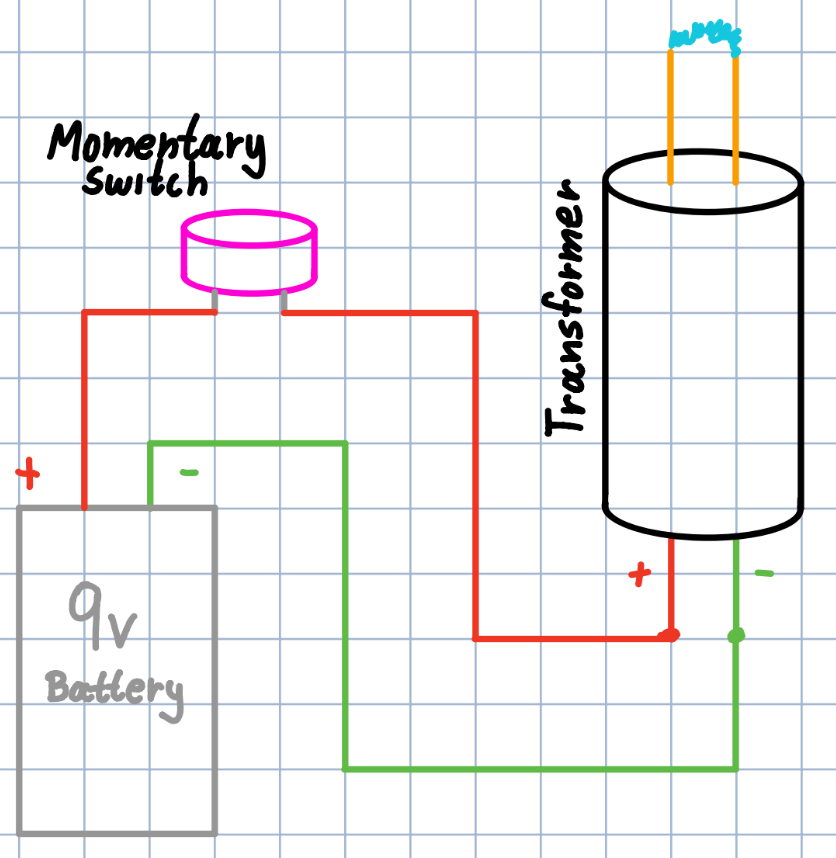 Momentary
Switch
Transformer
+
-
9v
Battery
+
-